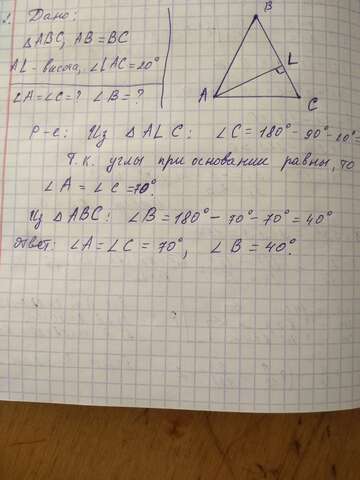 2. Дано:
△ABC, AB = BC
AL - высота, ∠LAC = 20°
∠A = ∠C = ? ∠B = ?
B
L
A
C
Р-е: Из △ALC: ∠C = 180° - 90° - 20° =
Т.к. углы при основании равны, то
∠A = ∠C = 70°
Из △ABC: ∠B = 180° - 70° - 70° = 40°
Ответ: ∠A = ∠C = 70°, ∠B = 40°.